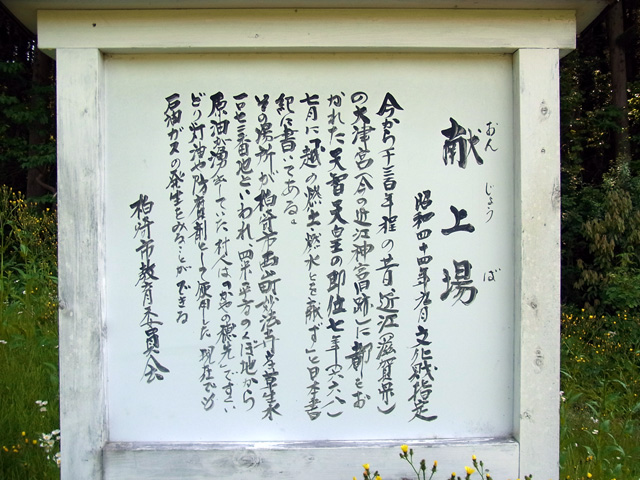 献上場
おん じょう ば
昭和四十四年九月文化財指定
今から千三百年程の昔、近江(滋賀県)
の大津宮(今の近江神宮旧跡)に都をお
かれた天智天皇の即位七年(六六八)
七月に「越の燃土燃水とを献ず」と日本書
紀に書いてある。
その場所が柏崎市西山町妙法寺字草生水
一一七三番地といわれ、四十平方のくぼ地から
原油が湧いていた。村人は「かやの穂先」ですくい
とり灯油や防腐剤として使用した。現在でも
石油ガスの発生をみることができる
柏崎市教育委員会